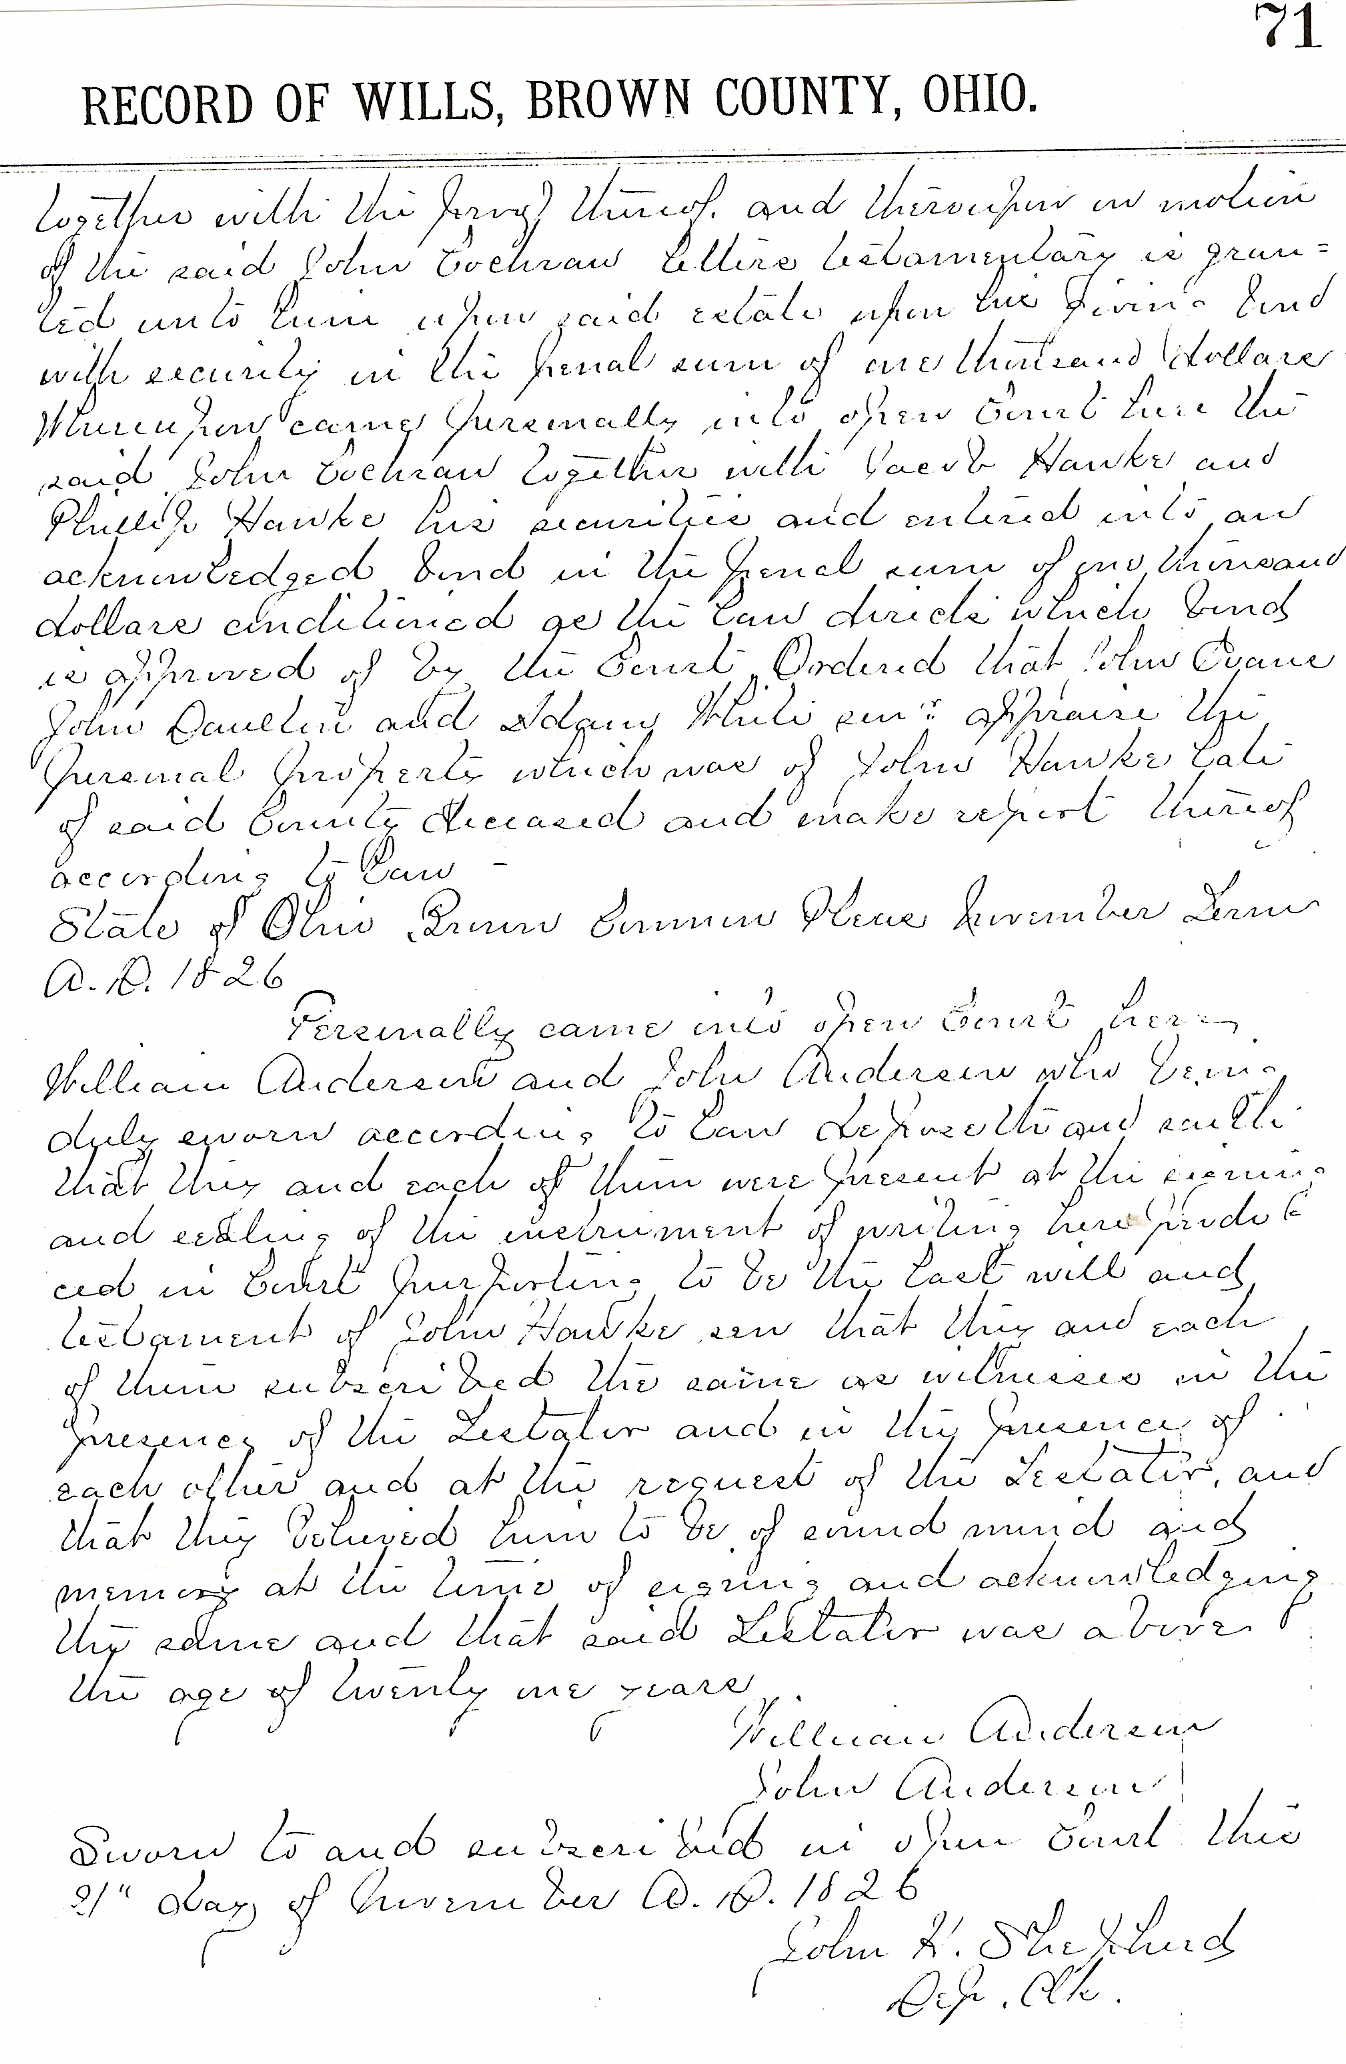 71
RECORD OF WILLS, BROWN COUNTY, OHIO.
together with the proof thereof. and thereupon on motion
of the said John Cochran letters testamentary is gran=
ted unto him upon said estate upon his giving bond
with security in the penal sum of one thousand dollars
Whereupon came personally into open Court here the
said John Cochran together with Jacob Hawke and
Phillip Hawke his securities and entered into an
acknowledged bond in the penal sum of one thousand
dollars conditioned as the law directs which bond
is approved of by the Court Ordered that John Evans
John Daulton and Adam White senr appraise the
personal property which was of John Hawke late
of said County deceased and make report thereof
according to law -
State of Ohio Brown Common Pleas November Term
A.D. 1826
Personally came into open Court here
William Anderson and John Anderson who being
duly sworn according to law deposeth and saith
that they and each of them were present at the signing
and sealing of the instrument of writing here produ
ced in Court purporting to be the last will and
testament of John Hawke sen that they and each
of them subscribed the same as witnesses in the
presence of the Testator and in the presence of
each other and at the request of the Testator, and
that they believed him to be of sound mind and
memory at the time of signing and acknowledging
the same and that said Testator was above
the age of twenty one years
William Anderson
John Anderson
Sworn to and subscribed in open Court this
21" day of November A.D. 1826
John H. Shepherd
Dep. Clk.